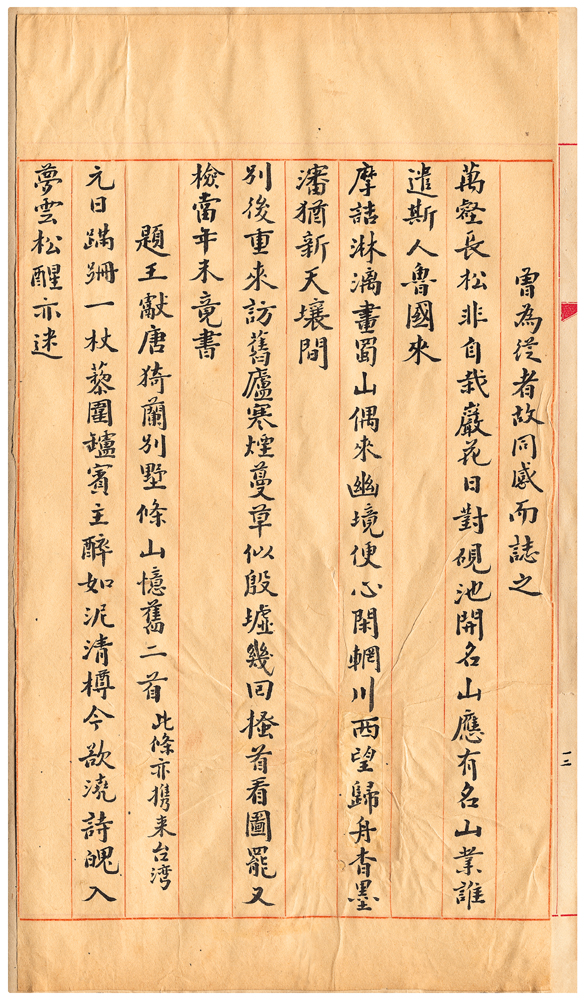 曾為從者故同感而誌之
萬壑長松非自栽巖花日對硯池開名山應有名山業誰
遣斯人魯國來
摩詰淋漓畫蜀山偶來幽境便心閑輞川西望歸舟杳墨
瀋猶新天壤間
別後重來訪舊廬寒煙蔓草似殷墟幾回搔首看圖罷又
檢當年未竟書
題王獻唐猗蘭別墅條山憶舊二首此條亦攜来台湾
元日蹣跚一杖藜圍罏賓主醉如泥清樽今欲澆詩魄入
夢雲松醒亦迷
三